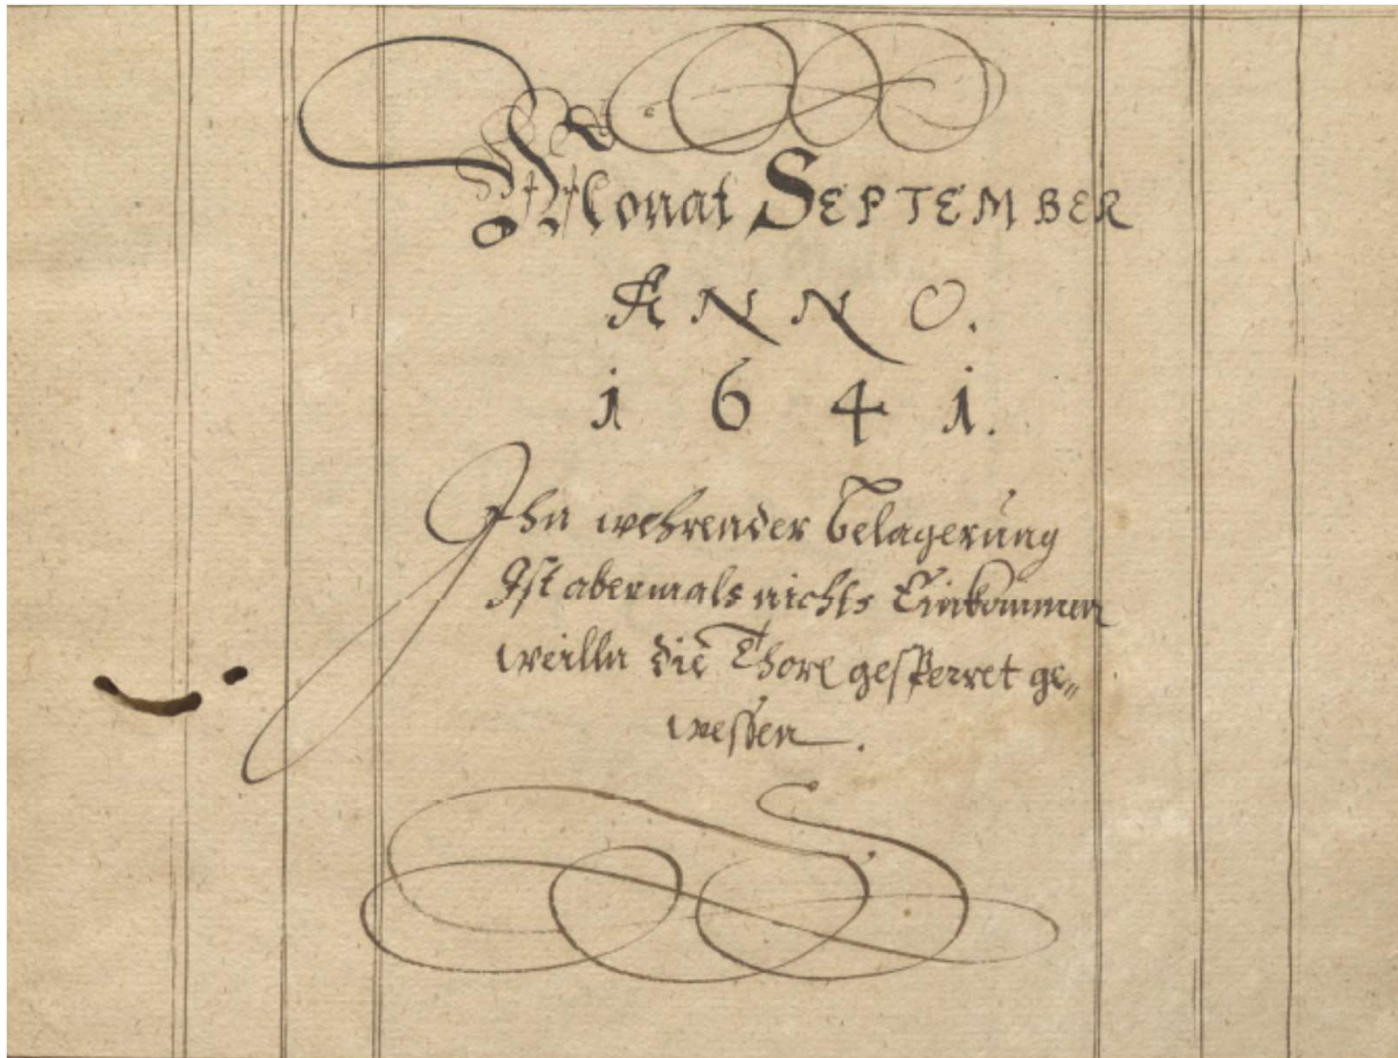 Monat SEPTEMBER
ANNO.
1641.
Ihn wehrender Belagerung
Ist abermals nichts Einkommen
weilln die Thore gesperret ge„
wessen.